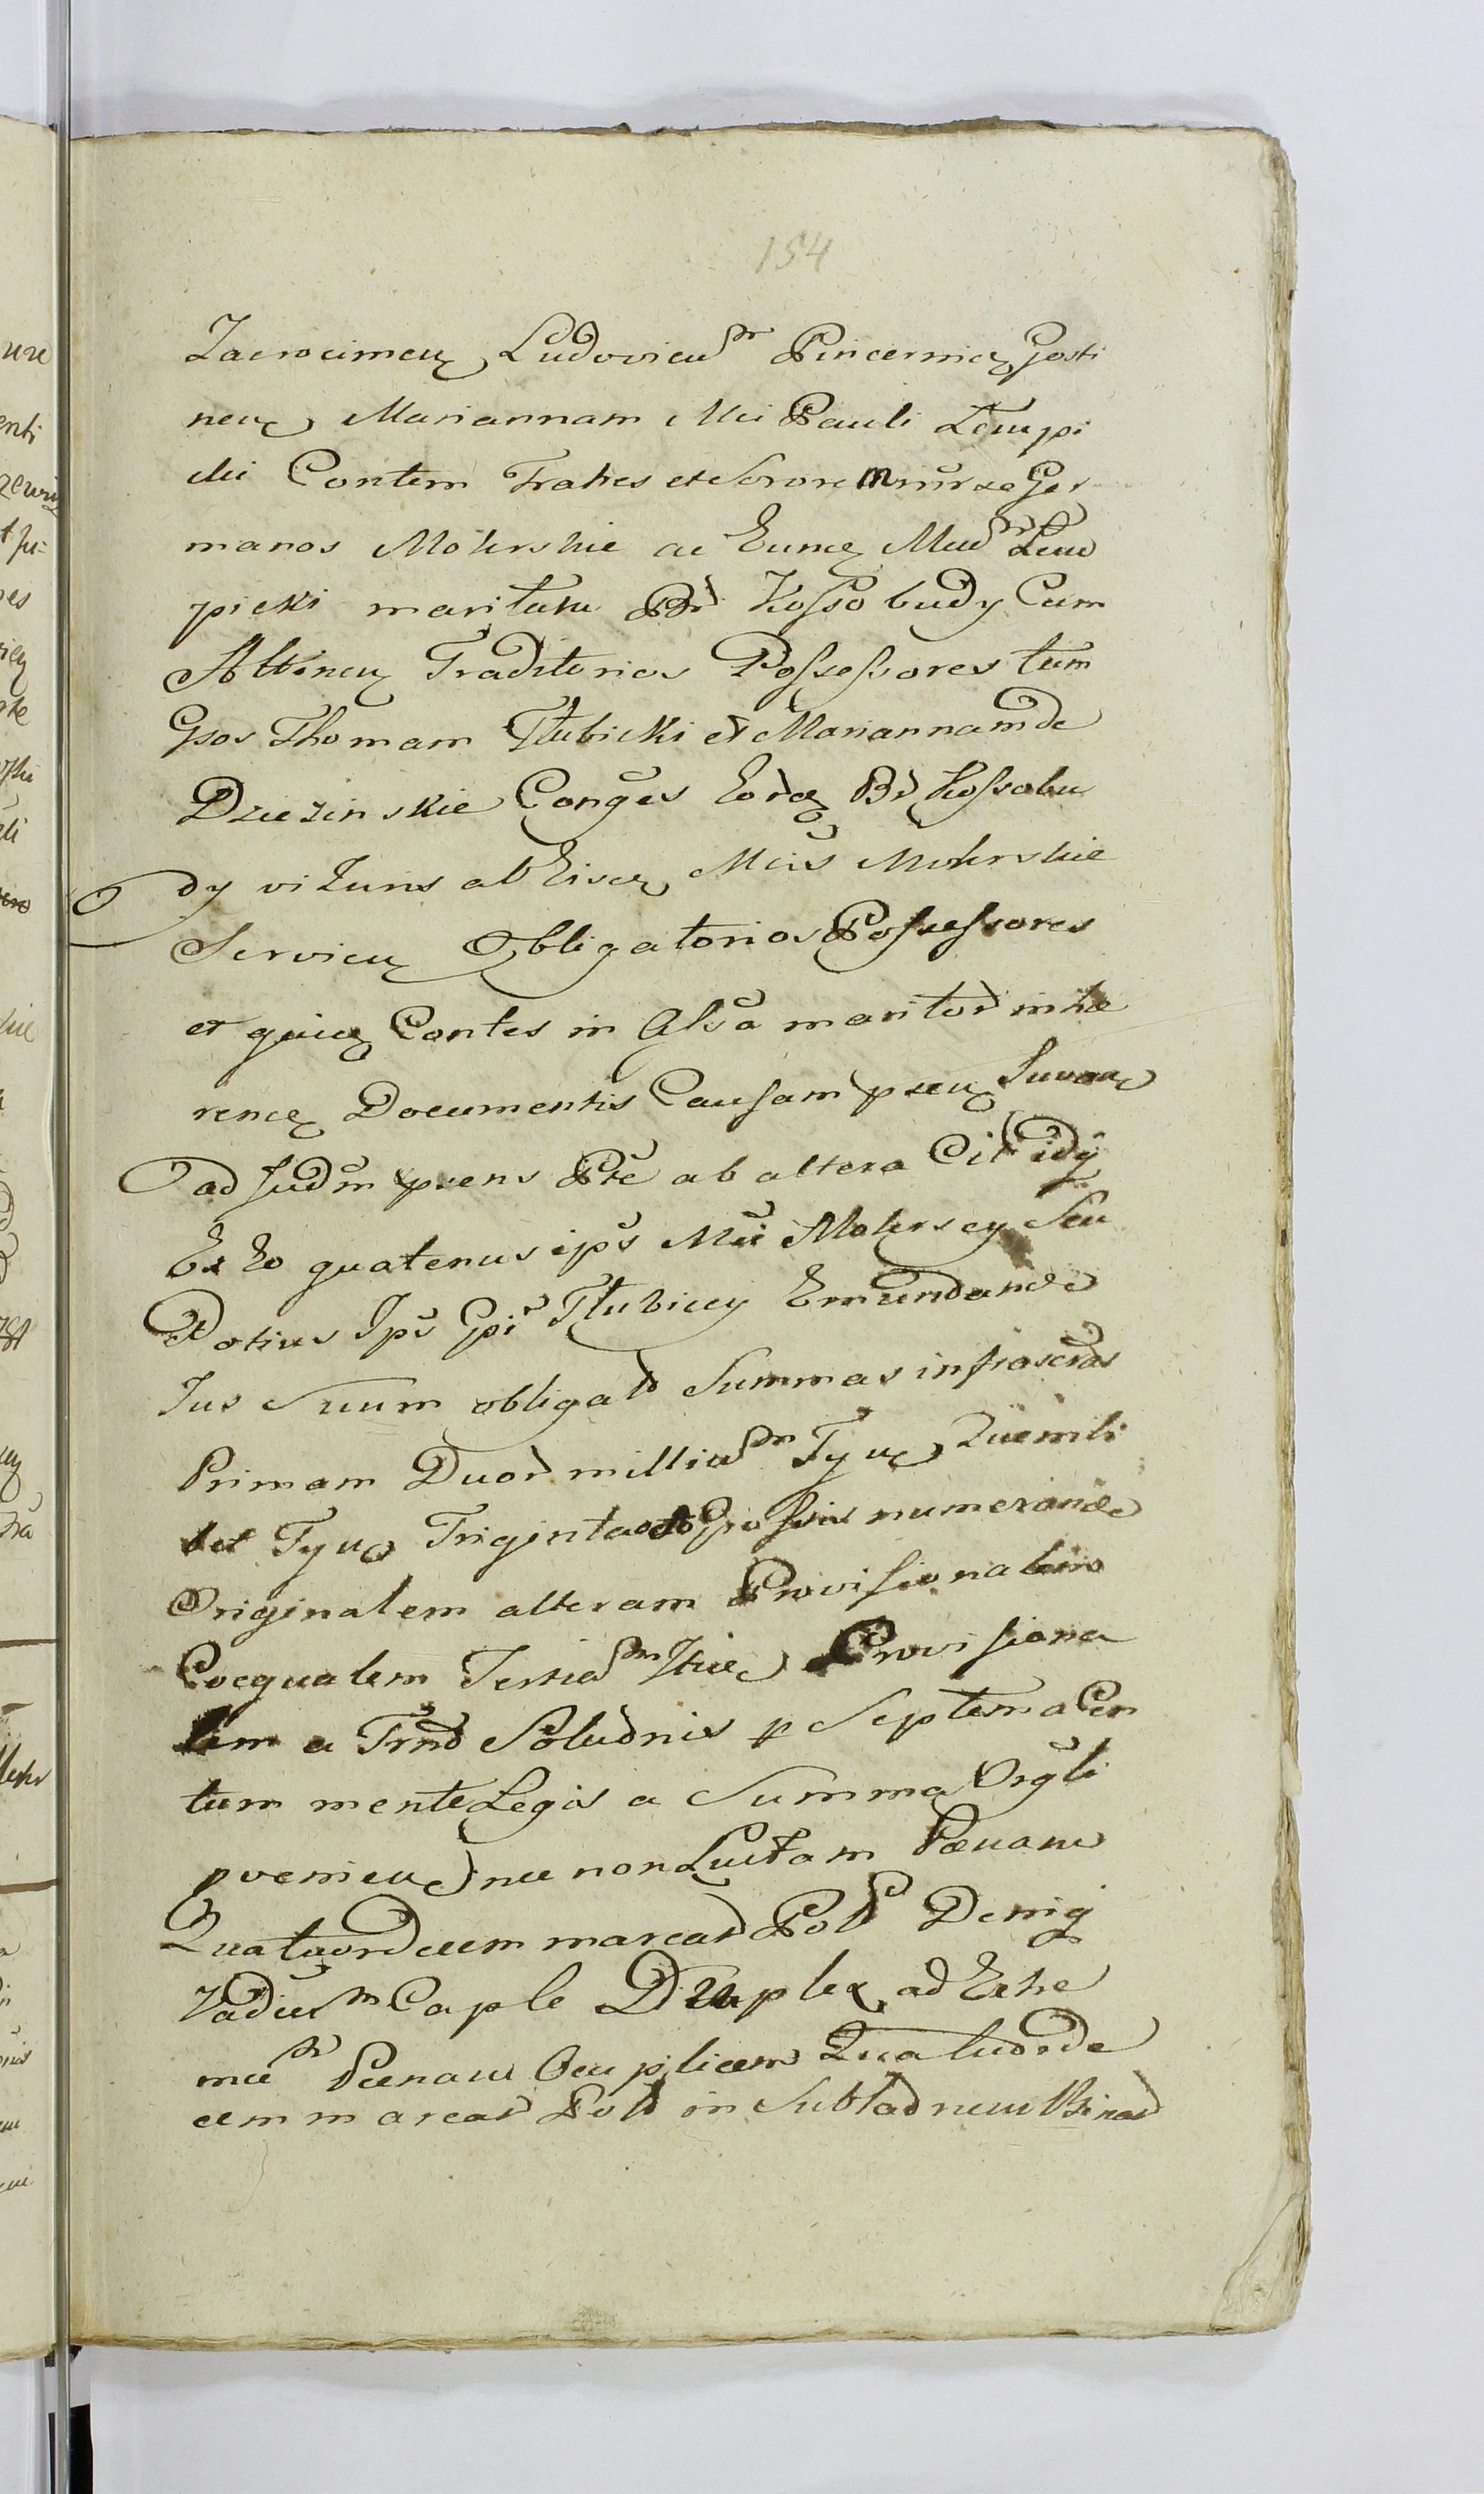 154
Zacrocimen Ludovicum Pincernie Gosti
nen Mariannam Mci Pauli Lempi
cki Contem Fratres et Sorore Ger
manos Mokrskie ac Eunce Mcum Lem
picki maritum Br Kossobudy Cum
Attinen Traditorios Possessores tum
Gsos Thomam Tłubicki et Mariannam de
Dziezinskie Conges Eorde Br Kossobu
dy vi Iuris ab Eisce Mcis Mokrskie
Servien Obligatorios Possessores
et quice Contes in Assa maritor inhæ
rence Documentis Causam
ad Judm prens Pte ab altera Cit idq
Ex Eo quatenus ips Mci Mokrscy Seu
Potius Ips Gsi Tłubiccy Emundando
Jus Suum obligat Summas infrascras
Primam Duor millium Tyn Quemli
bet Tyn Triginta octo Grossis numerando
Originalem alteram Provisionalem
Coequalem Tertiam Provisiona
lem a Trnd Soludnis p Septem a Cen
tum mente Legis a Summa Orgli
pvenien nec non Luitam Pænam
Quatuordecem marcar Pol Deniq
Vadium Caple Duplex ad Extre
mum Pænam Ocuplicem Quatuorde
cem marcar Pol in Subladnem Binas